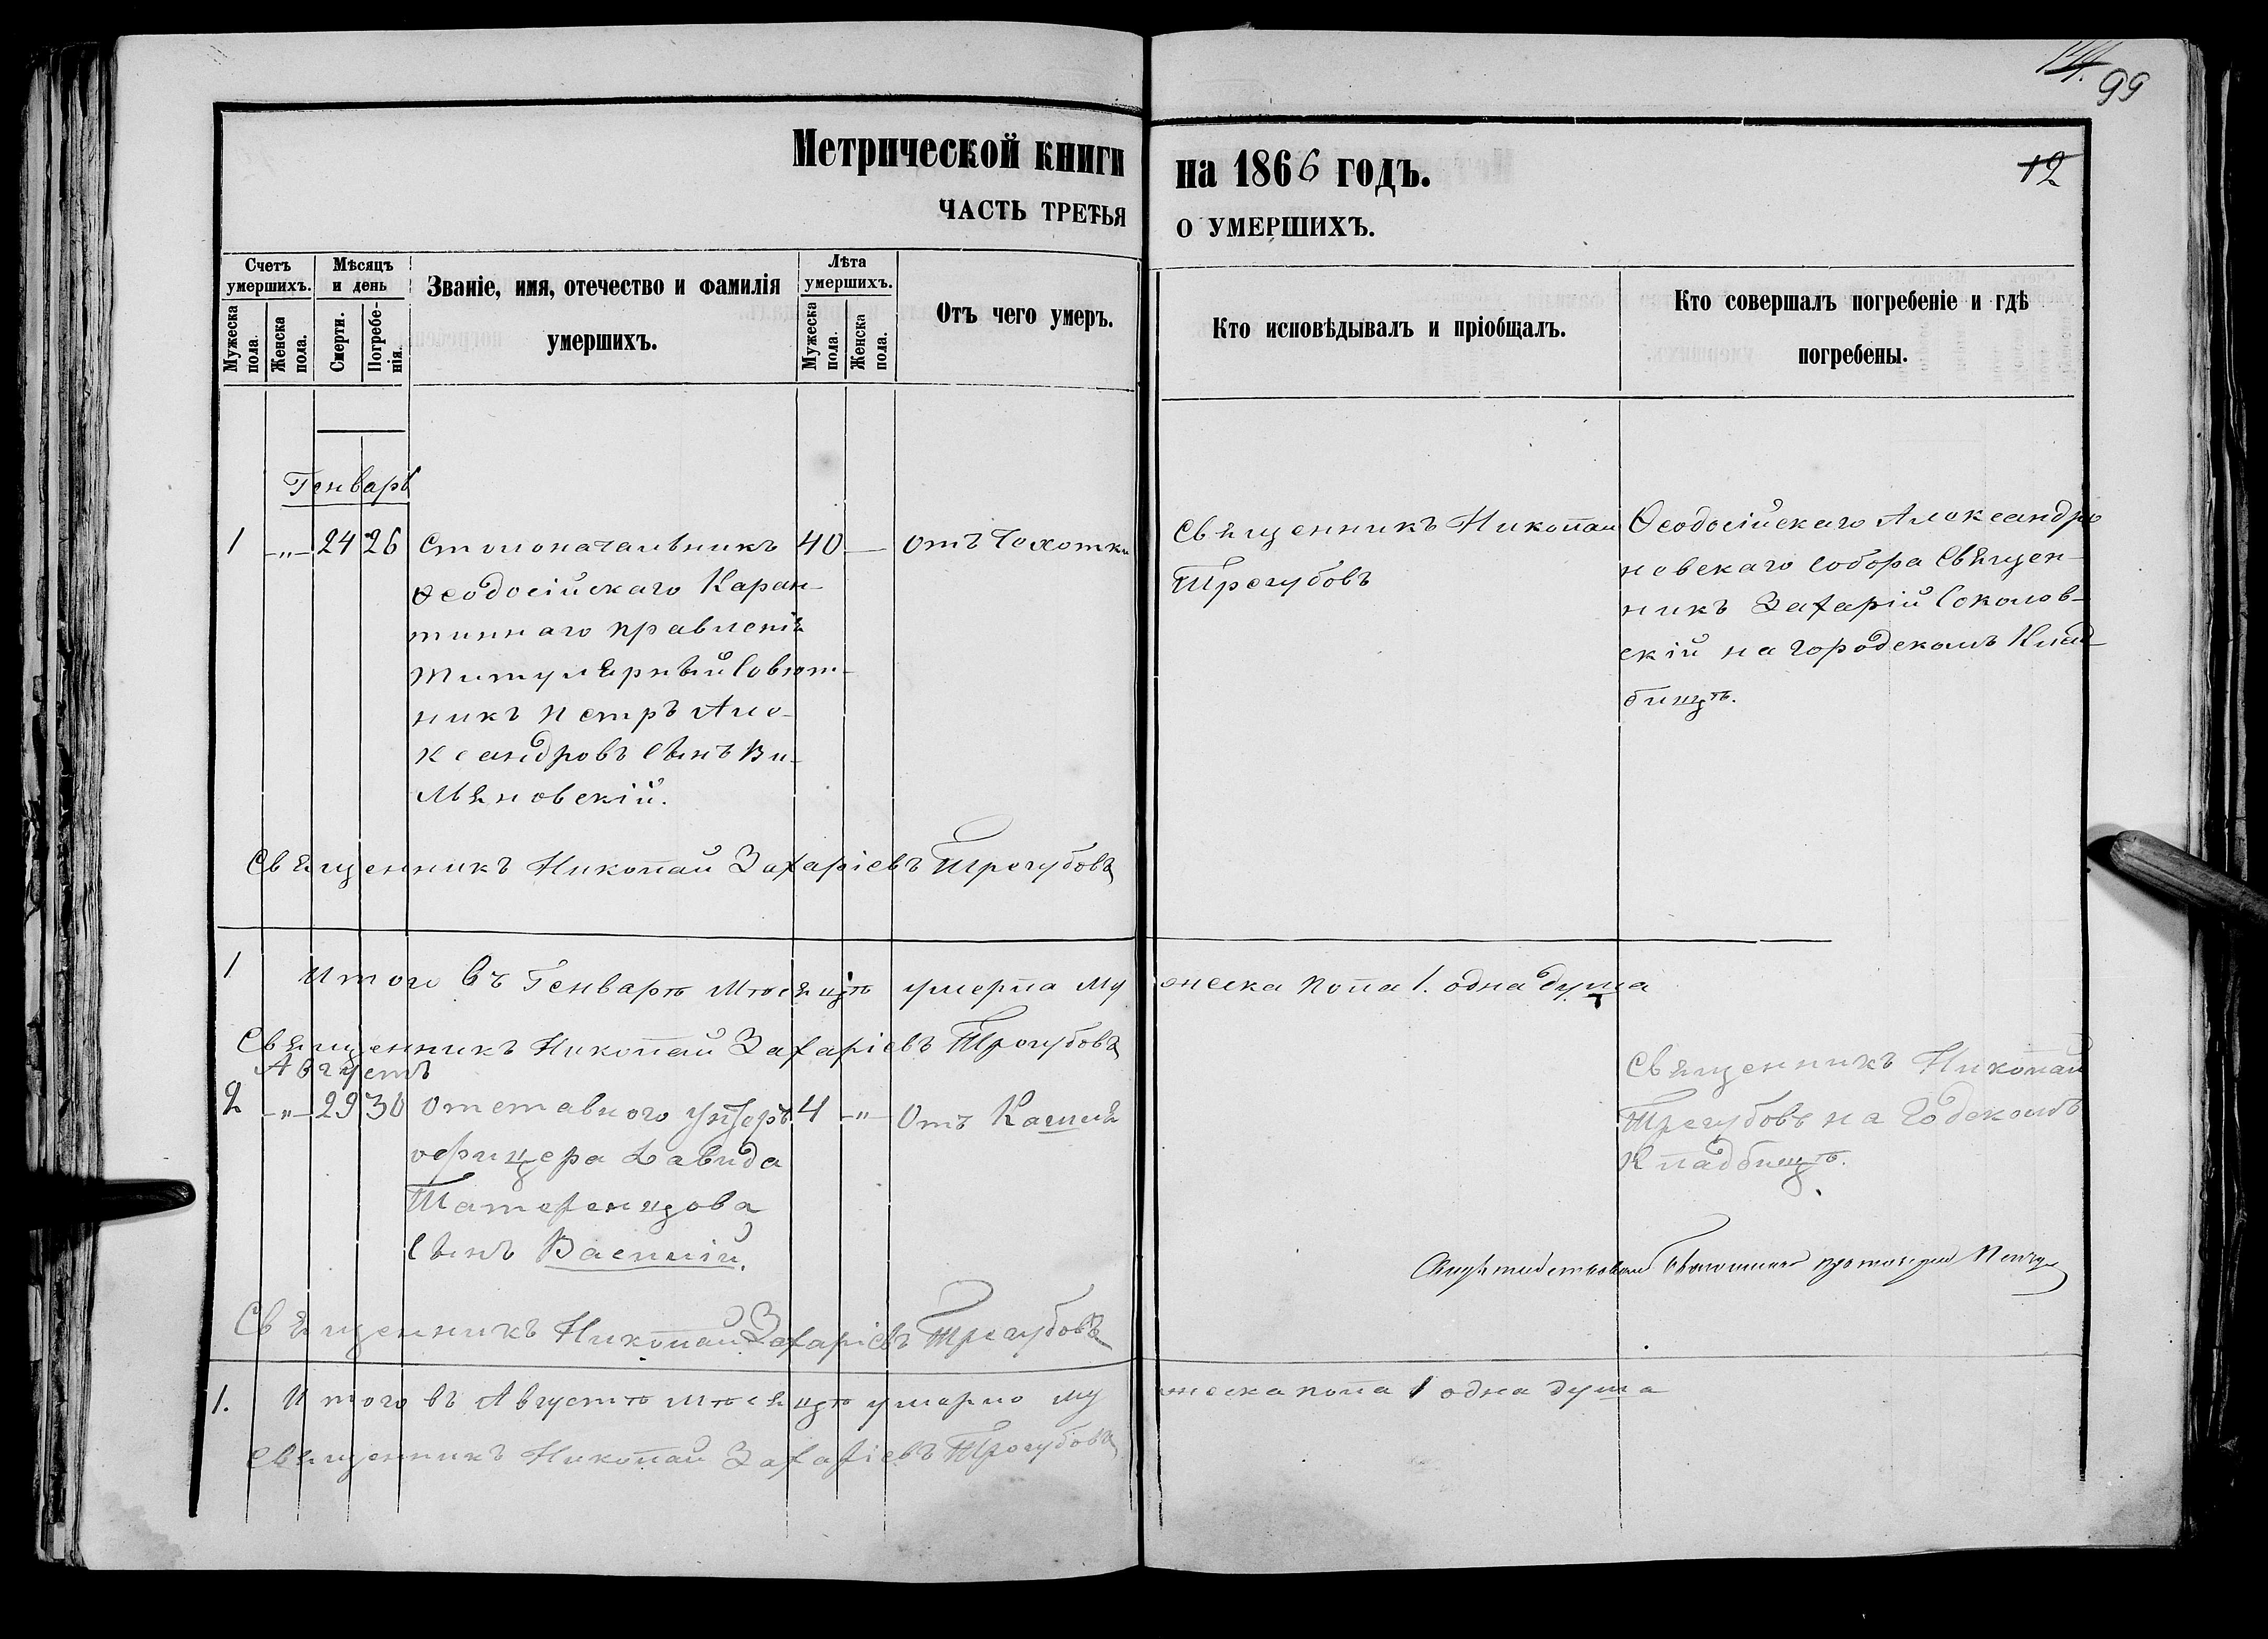 14.
99
12
Метрической книги на 1866 годъ.
ЧАСТЬ ТРЕТЬЯ О УМЕРШИХЪ.
Счетъ умершихъ.
Мужеска пола.
Женска пола.
Мѣсяцъ и день
Смерти.
Погребенія.
Званіе, имя, отечество и фамилія
умершихъ.
Лѣта умершихъ.
Мужеска пола.
Женска пола.
Отъ чего умеръ.
Кто исповѣдывалъ и пріобщалъ.
Кто совершалъ погребеніе и гдѣ
погребены.
Генварь
1 -„- 24 26 Столоначальникъ 40 — отъ Чохотки
Ѳеодосійскаго Каран-
тиннаго правленія
титулярный Совѣт-
никъ Петръ Але-
ксандровъ сынъ Ви-
льяновскій.
Священникъ Николай
Трегубовъ
Ѳеодосійскаго Александро
невскаго собора Священ-
никъ Захарій Соколов-
скій на городскомъ Клад-
бищѣ.
Священникъ Николай Захаріевъ Трегубовъ
1 Итого въ Генварѣ мѣсяцѣ умерла мужеска пола 1. одна душа
Священникъ Николай Захаріевъ Трегубовъ
Августъ
2 -„- 29 30 Отставного унтеръ 4 -„- Отъ Кашля
офицера Давида
Татеренцова
сынъ Василій.
Священникъ Николай
Трегубовъ на Годскомъ
Кладбищѣ.
Священникъ Николай Захаріевъ Трегубовъ
1. Итого въ Августѣ мѣсяцѣ умерло мужеска пола 1 одна душа
Священникъ Николай Захаріевъ Трегубовъ